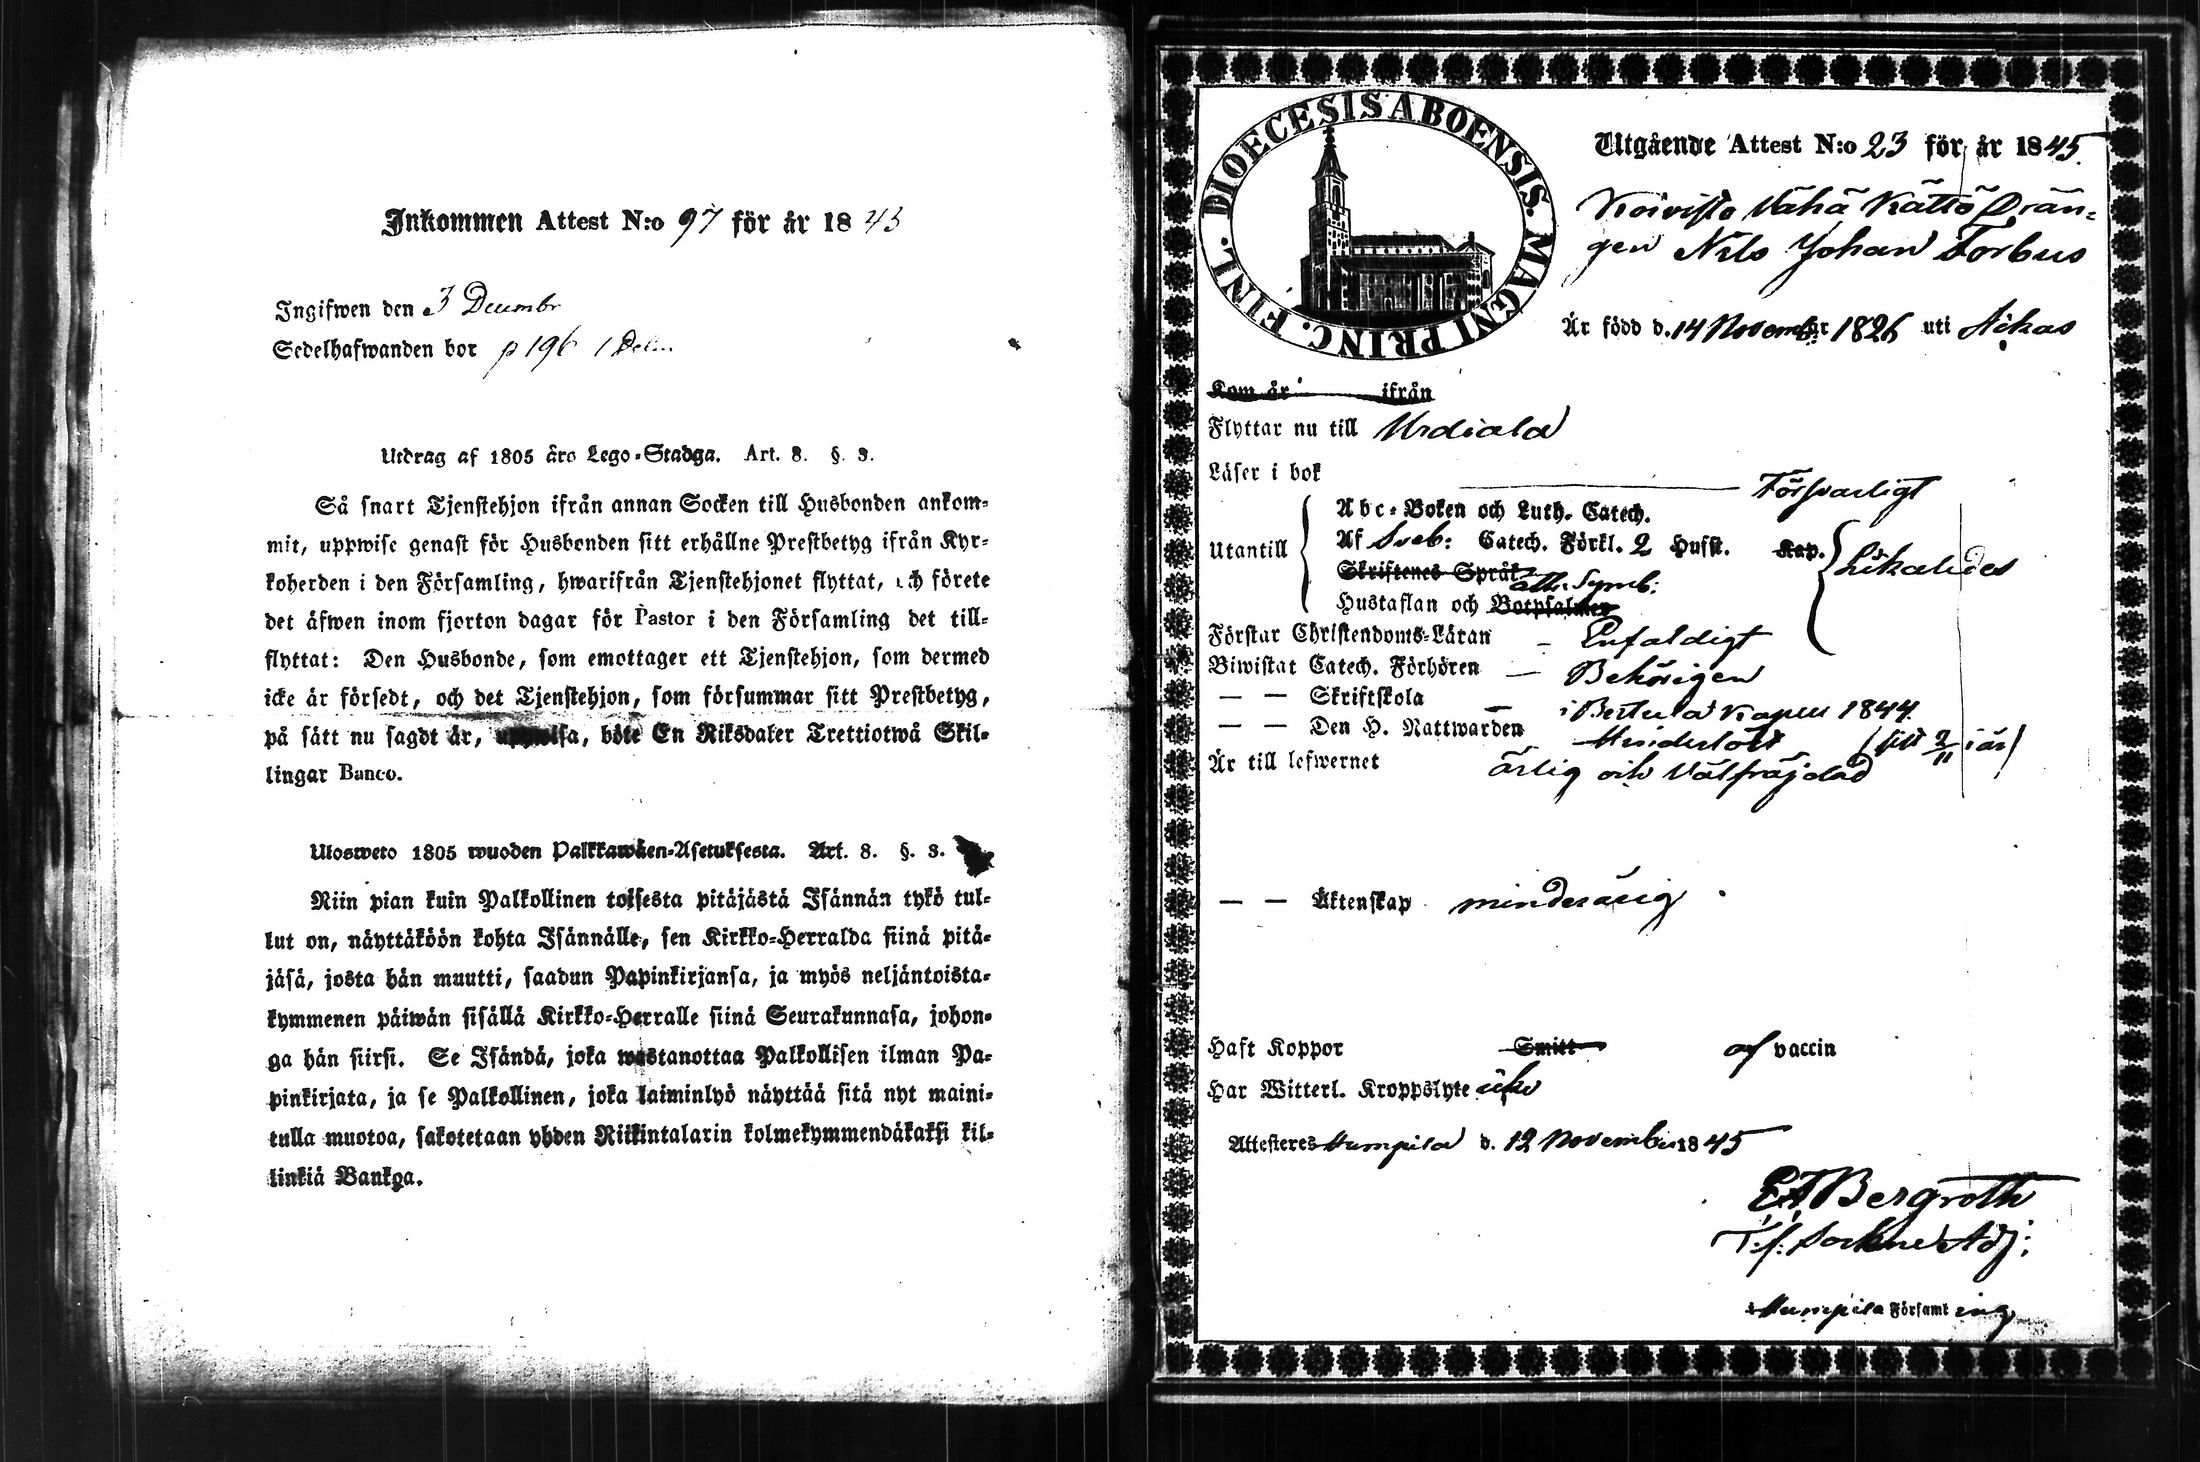 Inkommen Attest N:o 97 för år 1845
Ingifwen den 3 Decembr
Sedelhafwanden bor p 196
Utdrag af 1805 års Lego-Stadga. Art. 8. §. 3.
Så snart Tjenstehjon ifrån annan Socken till Husbonden ankom-
mit, uppwise genast för Husbonden sitt erhållne Prestbetyg ifrån Kyr-
koherden i den Församling, hwarifrån Tjenstehjonet flyttat, och förete
det äfwen inom fjorton dagar för Pastor i den Församling det till-
flyttat: Den Husbonde, som emottager ett Tjenstehjon, som dermed
icke är försedt, och det Tjenstehjon, som försummar sitt Prestbetyg,
på sätt nu sagdt är, uppwisa, böte En Riksdaler Trettiotwå Skil-
lingar Banco.
Ulosweto 1805 wuoden Palkkawäen-Asetuksesta. Art. 8. §. 3.
Niin pian kuin Palkollinen toisesta pitäjästä Isännän tykö tul-
lut on, näyttäköön kohta Isännälle, sen Kirkko-Herralda siinä pitä-
jäsä, josta hän muutti, saadun Papinkirjansa, ja myös neljäntoista-
kymmenen päiwän sisällä Kirkko-Herralle siinä Seurakunnasa, johon-
ga hän siirsi. Se Isändä, joka wastanottaa Palkollisen ilman Pa-
pinkirjata, ja se Palkollinen, joka laiminlyö näyttää sitä nyt maini-
tulla muotoa, sakotetaan yhden Riikintalarin kolmekymmendäkaksi kil-
linkiä Bankoa.
DIOECESIS ABOENSIS. MAGNI PRINC. FINL.
Utgående Attest N:o 23 för år 1845.
Koivisto Vähä Kättö Drän-
gen Nils Johan Forbus
Är född d. 14 November 1826 uti Akas
Kom år ifrån
Flyttar nu till Urdiala
Läser i bok Försvarligt
Utantill
Abc-Boken och Luth. Catech.
Af Sveb: Catech. Förkl. 2 Husst. Kap. Likaledes
Skriftenes Språk ath. Symb:
Hustaflan och Botpsalmer
Förstår Christendoms-Läran – Enfaldigt
Biwistat Catech. Förhören – Behörigen
— — Skriftskola – i Bertula Kapell 1844.
— — Den H. Nattwarden Hinderlöst (sist 2/11 i år)
Är till lefwernet ärlig och Välfräjdad
— — Äktenskap minderårig
Haft Koppor Smitt af vaccin
Har Witterl. Kroppslyte icke
Attesteres Humpila d. 12 November 1845
E A Bergroth
T. f. Sockne Adj:
i Humpila Församling